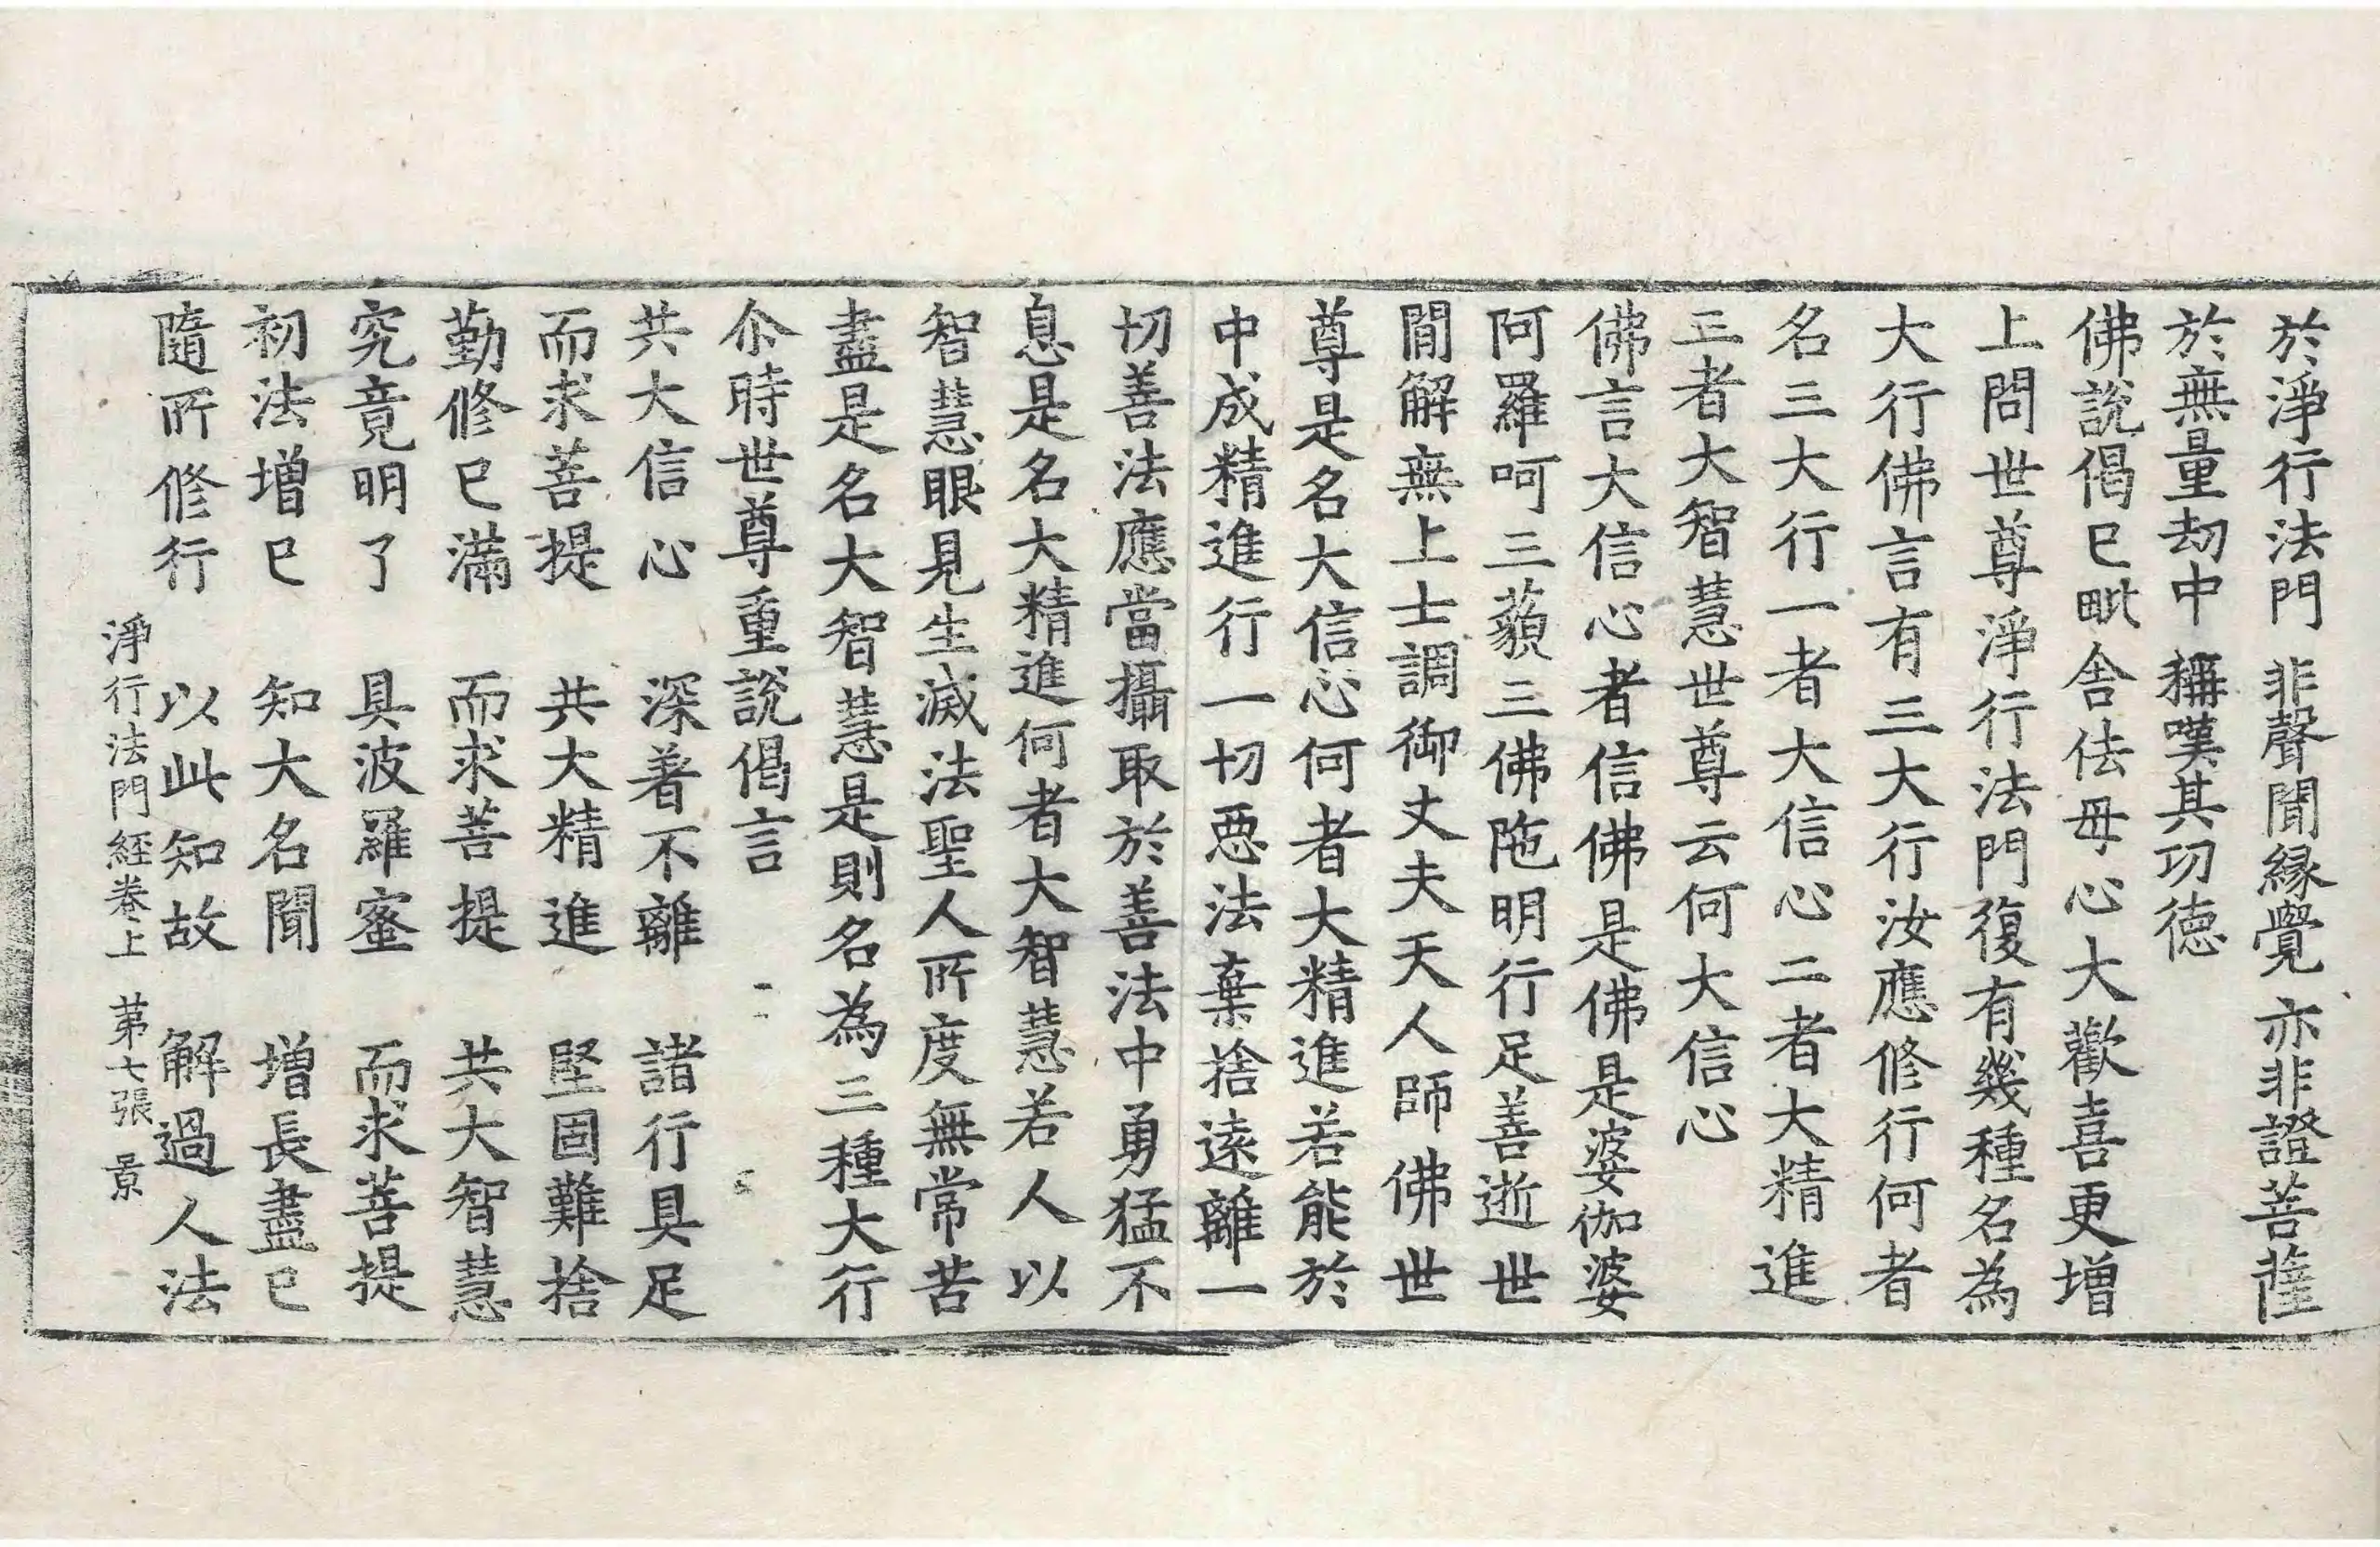 於淨行法門 非聲聞縁覺 亦非證菩薩
於無量劫中 稱嘆其功德
佛說偈已毗舍佉母心大歡喜更增
上問世尊淨行法門復有幾種名為
大行佛言有三大行汝應修行何者
名三大行一者大信心二者大精進
三者大智慧世尊云何大信心
佛言大信心者信佛是佛是婆伽婆
阿羅呵三藐三佛陁明行足善逝世
間解無上士調御丈夫天人師佛世
尊是名大信心何者大精進若能於
中成精進行一切惡法棄捨遠離一
切善法應當攝取於善法中勇猛不
息是名大精進何者大智慧若人以
智慧眼見生滅法聖人所度無常苦
盡是名大智慧是則名為三種大行
尒時世尊重說偈言
共大信心 深著不離 諸行具足
而求菩提 共大精進 堅固難捨
勤修已滿 而求菩提 共大智慧
究竟明了 具波羅蜜 而求菩提
初法增已 知大名聞 增長盡已
隨所修行 以此知故 解過人法
淨行法門経卷上 苐七張 景